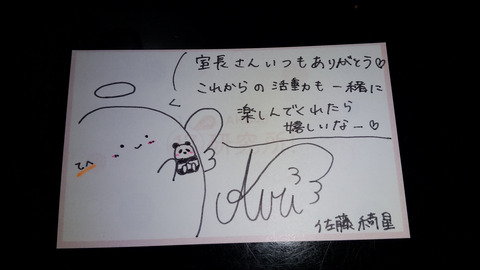 室長さんいつもありがとう♡
これからの活動も一緒に
楽しんでくれたら
嬉しいなー♡
てへ
佐藤綺星